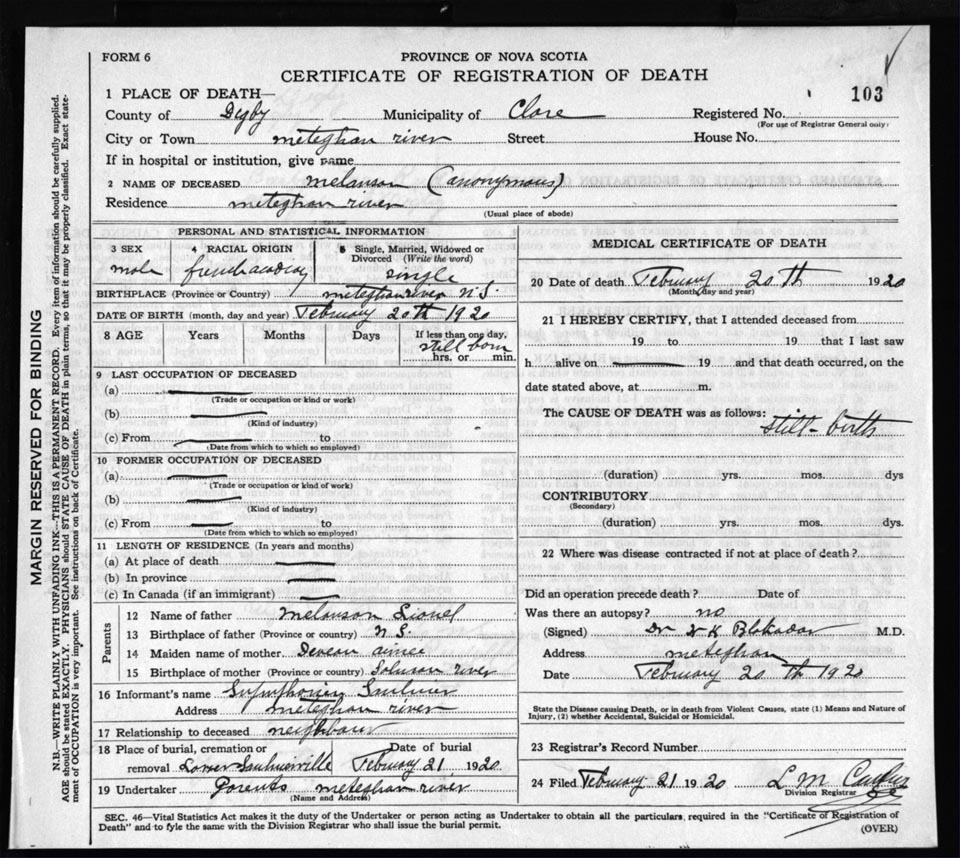 FORM 6
PROVINCE OF NOVA SCOTIA
CERTIFICATE OF REGISTRATION OF DEATH
103
1 PLACE OF DEATH—
County of Digby Municipality of Clare Registered No.
(For use of Registrar General only)
City or Town meteghan river Street House No.
If in hospital or institution, give name
2 NAME OF DECEASED melanson (anonymous)
Residence meteghan river
(Usual place of abode)
PERSONAL AND STATISTICAL INFORMATION
3 SEX 4 RACIAL ORIGIN 5 Single, Married, Widowed or
Divorced (Write the word)
male single
BIRTHPLACE (Province or Country) meteghan river N.S.
DATE OF BIRTH (month, day and year) February 20th 1920
8 AGE Years Months Days If less than one day,
still born
hrs. or min.
9 LAST OCCUPATION OF DECEASED
(a)
(Trade or occupation or kind of work)
(b)
(Kind of industry)
(c) From to
(Date from which to which so employed)
10 FORMER OCCUPATION OF DECEASED
(a)
(Trade or occupation or kind of work)
(b)
(Kind of industry)
(c) From to
(Date from which to which so employed)
11 LENGTH OF RESIDENCE (In years and months)
(a) At place of death
(b) In province
(c) In Canada (if an immigrant)
Parents
12 Name of father melanson Lionel
13 Birthplace of father (Province or country) N S.
14 Maiden name of mother Deveau aimee
15 Birthplace of mother (Province or country) Salmon river
16 Informant's name Saulnier
Address meteghan river
17 Relationship to deceased neighbour
18 Place of burial, cremation or Date of burial
removal Lower Saulnierville February 21 1920
19 Undertaker Parents meteghan river
(Name and Address)
MEDICAL CERTIFICATE OF DEATH
20 Date of death February 20th 1920
(Month, day and year)
21 I HEREBY CERTIFY, that I attended deceased from
19 to 19 that I last saw
h alive on 19 and that death occurred, on the
date stated above, at m.
The CAUSE OF DEATH was as follows:
still-birth
(duration) yrs. mos. dys
CONTRIBUTORY
(Secondary)
(duration) yrs. mos. dys.
22 Where was disease contracted if not at place of death?
Did an operation precede death? Date of
Was there an autopsy? no
(Signed) Dr M.D.
Address meteghan
Date February 20th 1920
State the Disease causing Death, or in death from Violent Causes, state (1) Means and Nature of
Injury, (2) whether Accidental, Suicidal or Homicidal.
23 Registrar's Record Number
24 Filed February 21 1920 L M
Division Registrar
SEC. 46—Vital Statistics Act makes it the duty of the Undertaker or person acting as Undertaker to obtain all the particulars, required in the "Certificate of Registration of
Death" and to fyle the same with the Division Registrar who shall issue the burial permit.
(OVER)
MARGIN RESERVED FOR BINDING
N.B.—WRITE PLAINLY WITH UNFADING INK—THIS IS A PERMANENT RECORD. Every item of information should be carefully supplied.
AGE should be stated EXACTLY. PHYSICIANS should STATE CAUSE OF DEATH in plain terms, so that it may be properly classified. Exact state-
ment of OCCUPATION is very important. See instructions on back of Certificate.